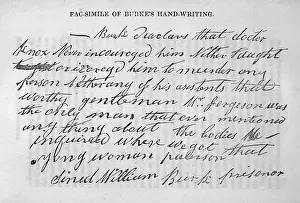 FAC-SIMILE OF BURKE'S HAND-WRITING.
— Burk deaclars that docter
Knox Never incoureged him Nither taught
or incoreged him to murder any
person Nether any of his asistents that
worthy gentleman Mr. Fergeson was
the only man that ever mentioned
any thing about the bodies He
inquired where we got that
yong woman paterson that
Sined William Burk prisoner